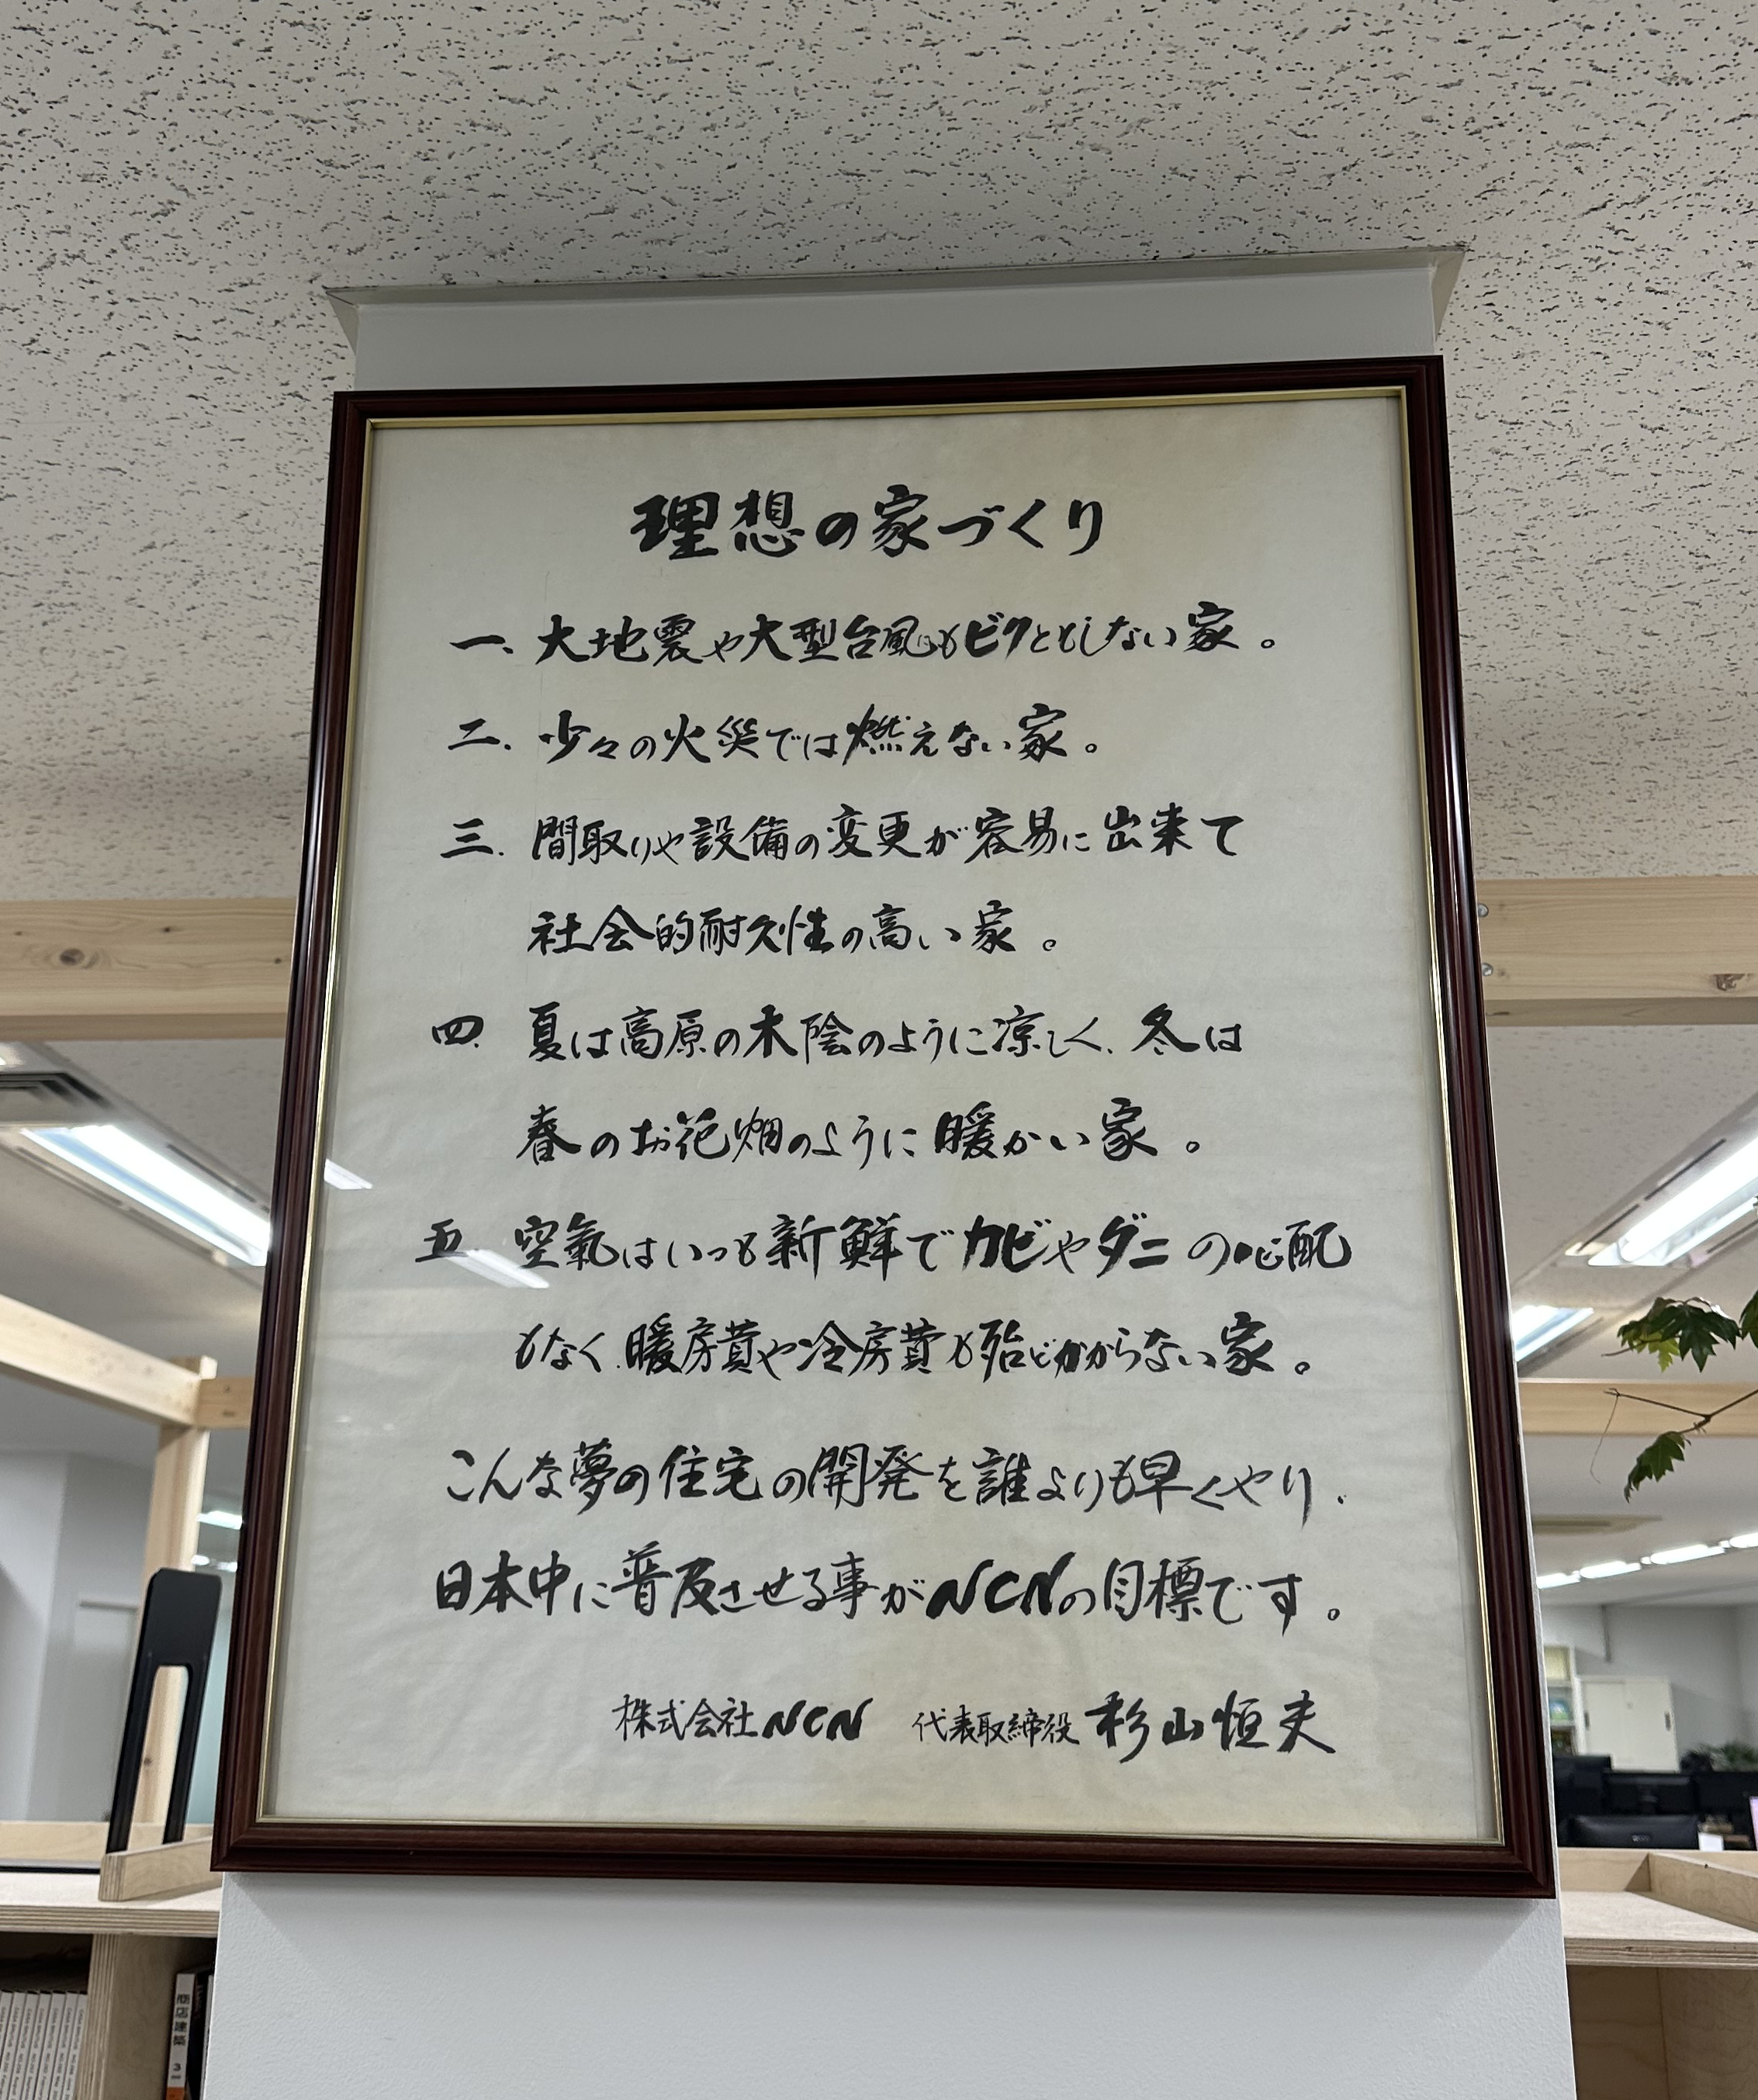 理想の家づくり
一、大地震や大型台風もビクともしない家。
二、少々の火災では燃えない家。
三、間取りや設備の変更が容易に出来て
社会的耐久性の高い家。
四、夏は高原の木陰のように涼しく、冬は
春のお花畑のように暖かい家。
五、空氣はいつも新鮮でカビやダニの心配
もなく、暖房費や冷房費も殆どかからない家。
こんな夢の住宅の開発を誰よりも早くやり、
日本中に普及させる事がNCNの目標です。
株式会社NCN 代表取締役 杉山恒夫
商店建築 3